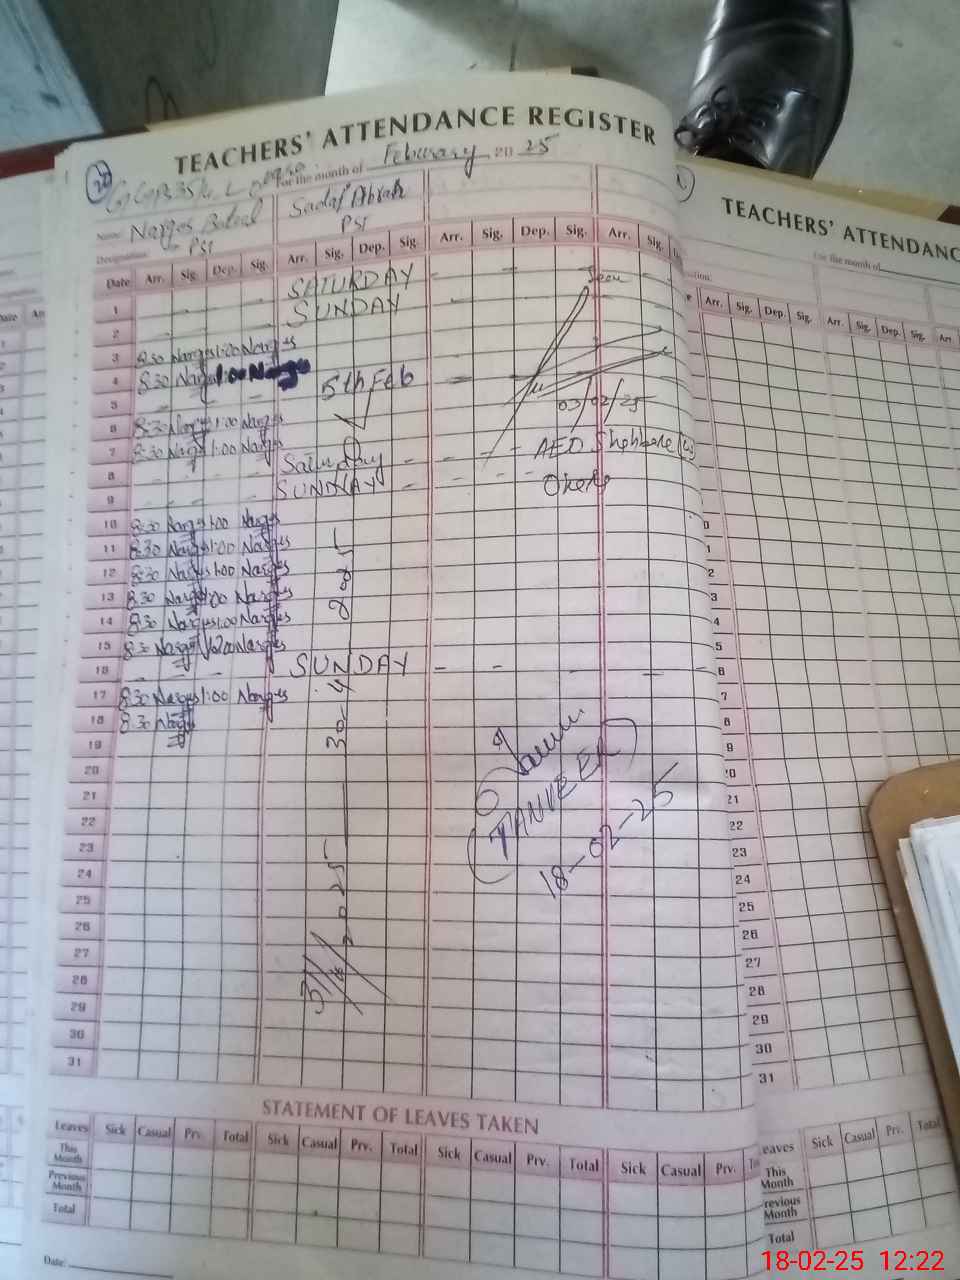 TEACHERS' ATTENDANCE REGISTER
For the month of February 2025
Name: Narges Batool Sadaf Abrah
Designation: PST PST
Date Arr. Sig. Dep. Sig. Arr. Sig. Dep. Sig. Arr. Sig. Dep. Sig. Arr. Sig.
1 - - - - SATURDAY - - -
2 - - - - SUNDAY - -
3 8:30 Narges 1:00 Narges
4 8:30 Narges 1:00 Narges
5 - - - - 5th Feb - -
03/02/25
6 8:30 Narges 1:00 Narges
7 8:30 Narges 1:00 Narges
AEO
8 - - - - Saturday - - - -
9 - - - - SUNDAY - - - -
10 8:30 Narges 1:00 Narges
11 8:30 Narges 1:00 Narges
12 8:30 Narges 1:00 Narges
13 8:30 Narges 1:00 Narges
14 8:30 Narges 1:00 Narges
15 8:30 Narges 12:00 Narges
16 - - - - SUNDAY - - - -
17 8:30 Narges 1:00 Narges
18 8:30 Narges
19
20
21
22
23
24
25
26
27
28
29
30
31
TANVEER
18-02-25
STATEMENT OF LEAVES TAKEN
Leaves Sick Casual Prv. Total Sick Casual Prv. Total Sick Casual Prv. Total Sick Casual Prv.
This Month
Previous Month
Total
Date:
TEACHERS' ATTENDANC
For the month of
Arr. Sig. Dep. Sig. Arr. Sig. Dep. Sig. Arr.
21
22
23
24
25
26
27
28
29
30
31
eaves Sick Casual Prv. Total
This Month
revious Month
Total
18-02-25 12:22